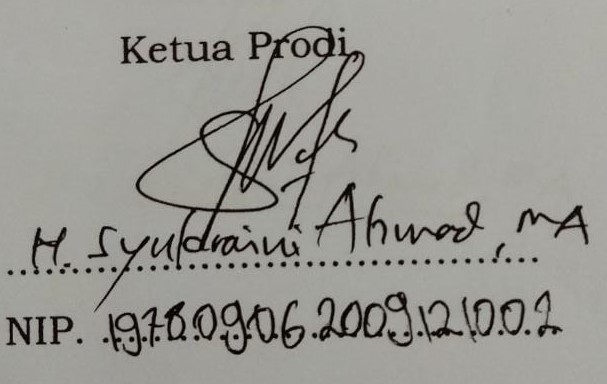 Ketua Prodi,
H. Syukraini Ahmad, MA
NIP. 19780906 200912 1002